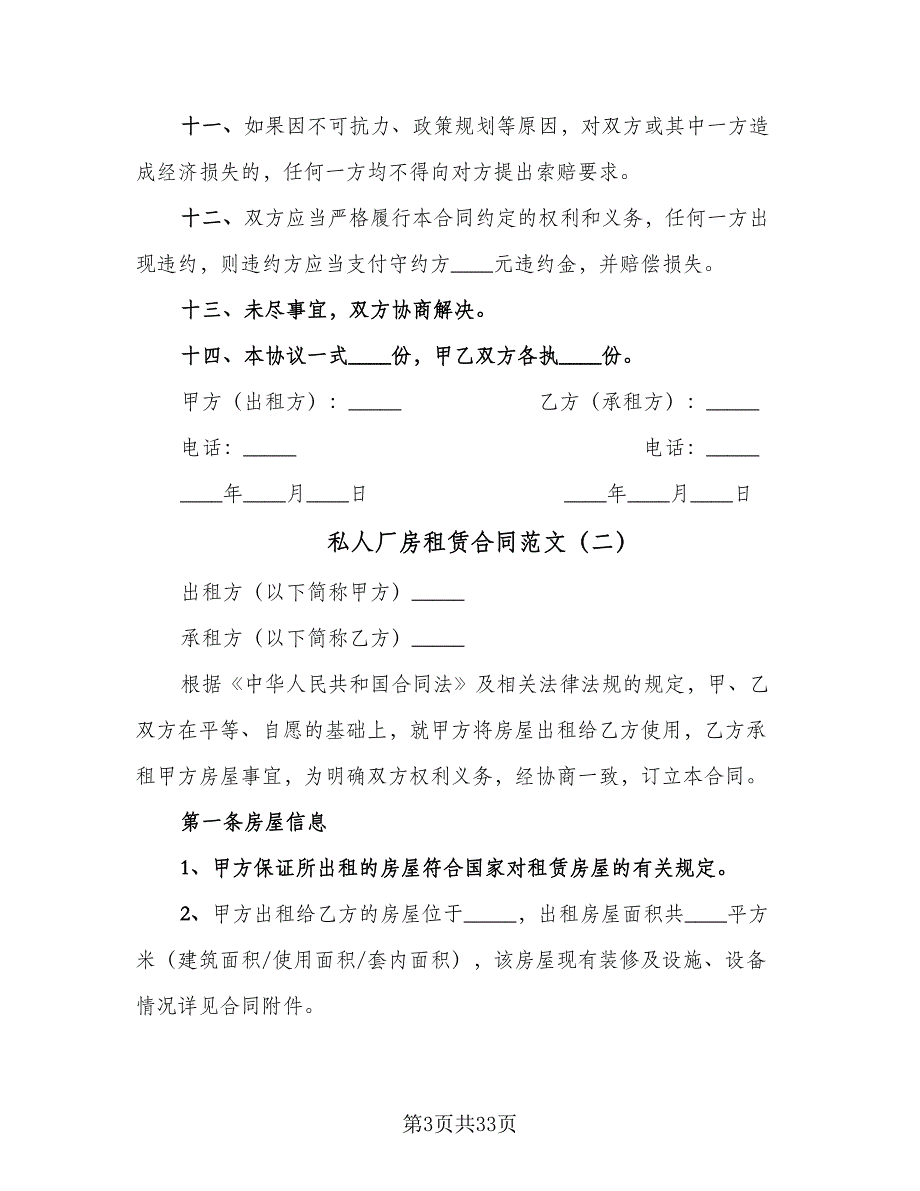 十一、如果因不可抗力、政策规划等原因，对双方或其中一方造
成经济损失的，任何一方均不得向对方提出索赔要求。
十二、双方应当严格履行本合同约定的权利和义务，任何一方出
现违约，则违约方应当支付守约方____元违约金，并赔偿损失。
十三、未尽事宜，双方协商解决。
十四、本协议一式____份，甲乙双方各执____份。
甲方（出租方）：_____ 乙方（承租方）：_____
电话：_____ 电话：_____
____年____月____日 ____年____月____日
私人厂房租赁合同范文（二）
出租方（以下简称甲方）_____
承租方（以下简称乙方）_____
根据《中华人民共和国合同法》及相关法律法规的规定，甲、乙
双方在平等、自愿的基础上，就甲方将房屋出租给乙方使用，乙方承
租甲方房屋事宜，为明确双方权利义务，经协商一致，订立本合同。
第一条房屋信息
1、甲方保证所出租的房屋符合国家对租赁房屋的有关规定。
2、甲方出租给乙方的房屋位于_____，出租房屋面积共____平方
米（建筑面积/使用面积/套内面积），该房屋现有装修及设施、设备
情况详见合同附件。
第3页共33页